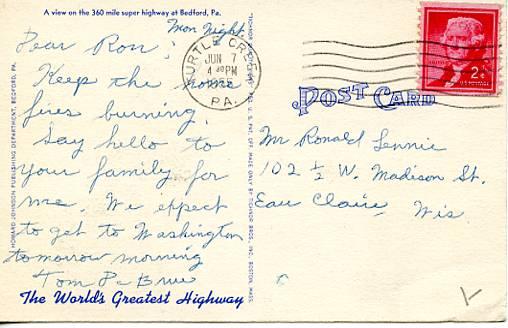 A view on the 360 mile super highway at Bedford, Pa.
Mon Night.
Dear Ron:
Keep the home
fires burning.
Say hello to
your family for
me. We expect
to get to Washington
tomorrow morning
Tom
The World's Greatest Highway
HOWARD JOHNSON PUBLISHING DEPARTMENT, BEDFORD, PA.
TURTLE CREEK
JUN 7
4 30 PM
PA.
POST CARD
2¢
U.S. POSTAGE
Mr Ronald Jennie
102 ½ W. Madison St.
Eau Claire, Wis.